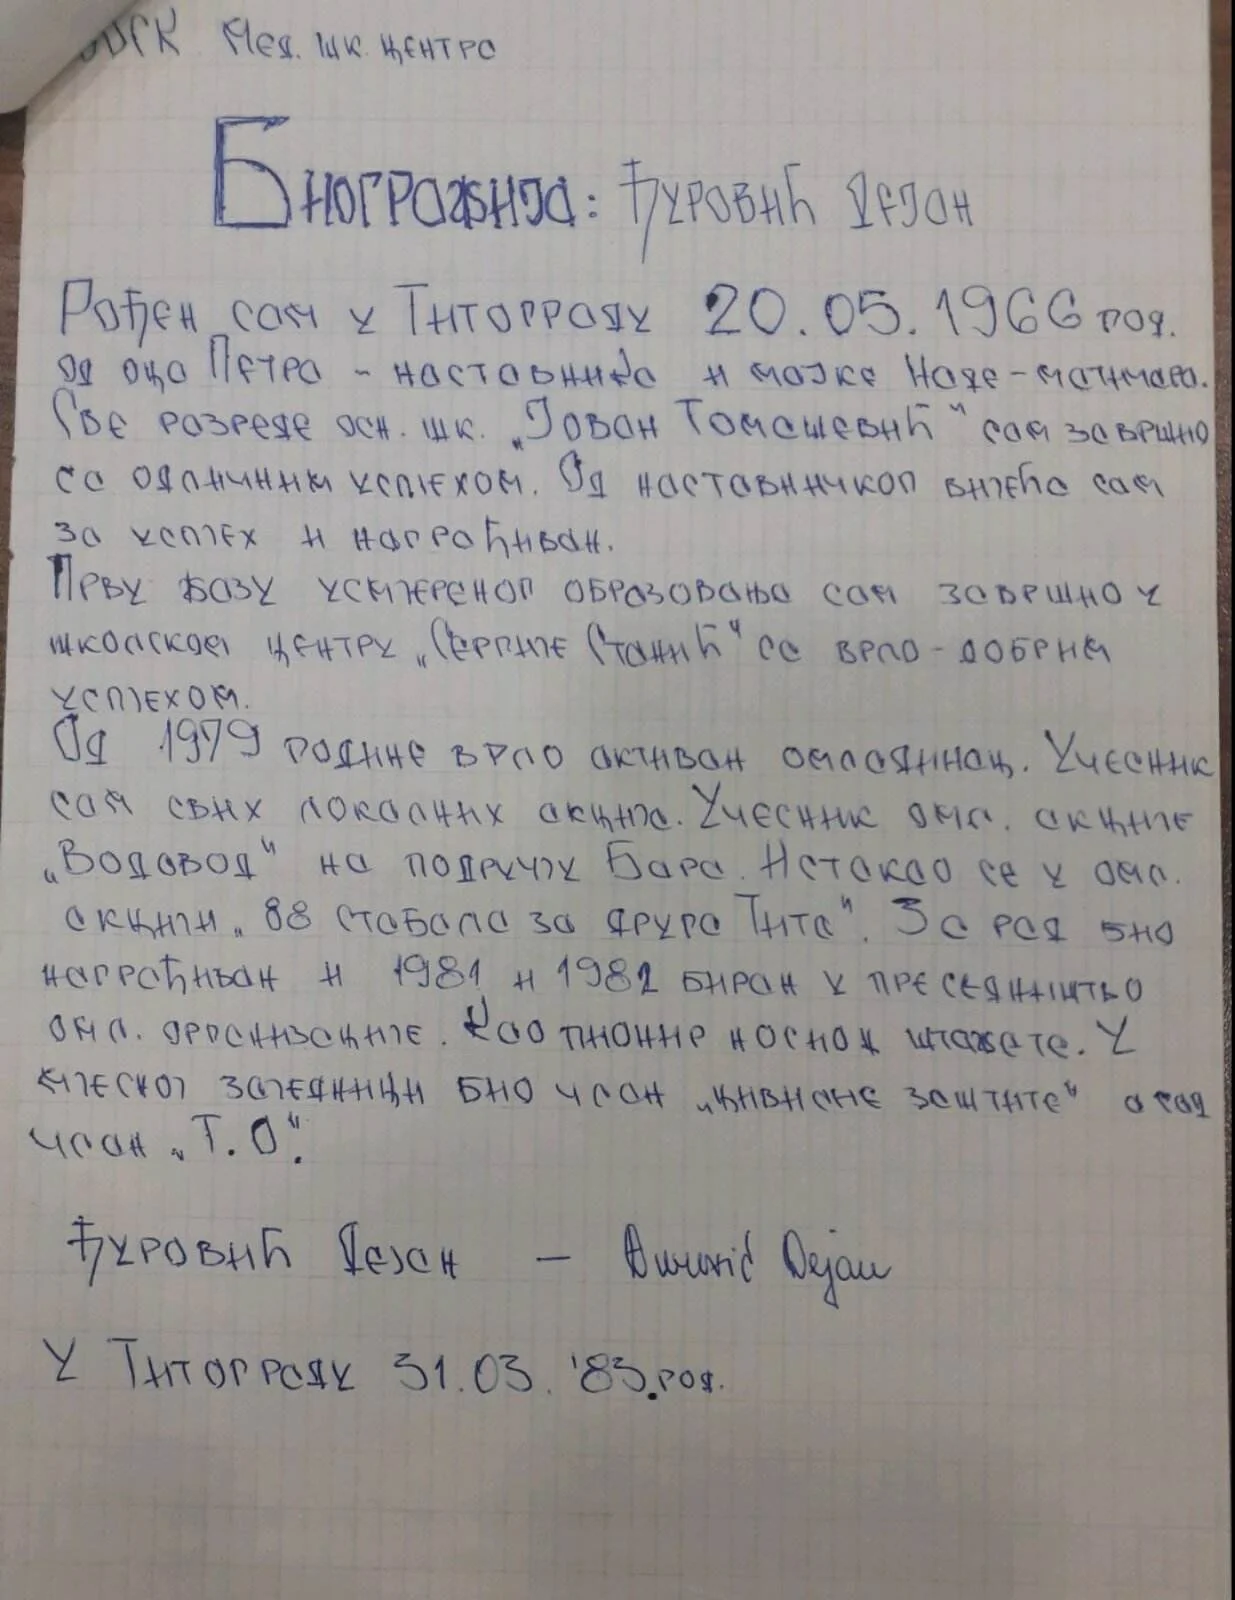 ООСК Мед. шк. центра
Биографија: Ђуровић Дејан
Рођен сам у Титограду 20.05.1966 год.
од оца Петра - наставника и мајке Наде - матичара.
Све разреде осн. шк. „Јован Томашевић" сам завршио
са одличним успјехом. Од наставничког вијећа сам
за успјех и награђиван.
Прву фазу усмјереног образовања сам завршио у
школском центру „Сергије Станић" са врло-добрим
успјехом.
Од 1979 године врло активан омладинац. Учесник
сам свих локалних акција. Учесник омл. акције
„Водовод" на подручју Бара. Истакао се у омл.
акцији „88 стабала за друга Тита". За рад био
награђиван и 1981 и 1982 биран у пресједништво
омл. организације. Као пионир носиох штафете. У
мјесној заједници био члан „цивилне заштите" а сад
члан „Т.О".
Ђуровић Дејан - Đurović Dejan
У Титограду 31.03. '83.год.